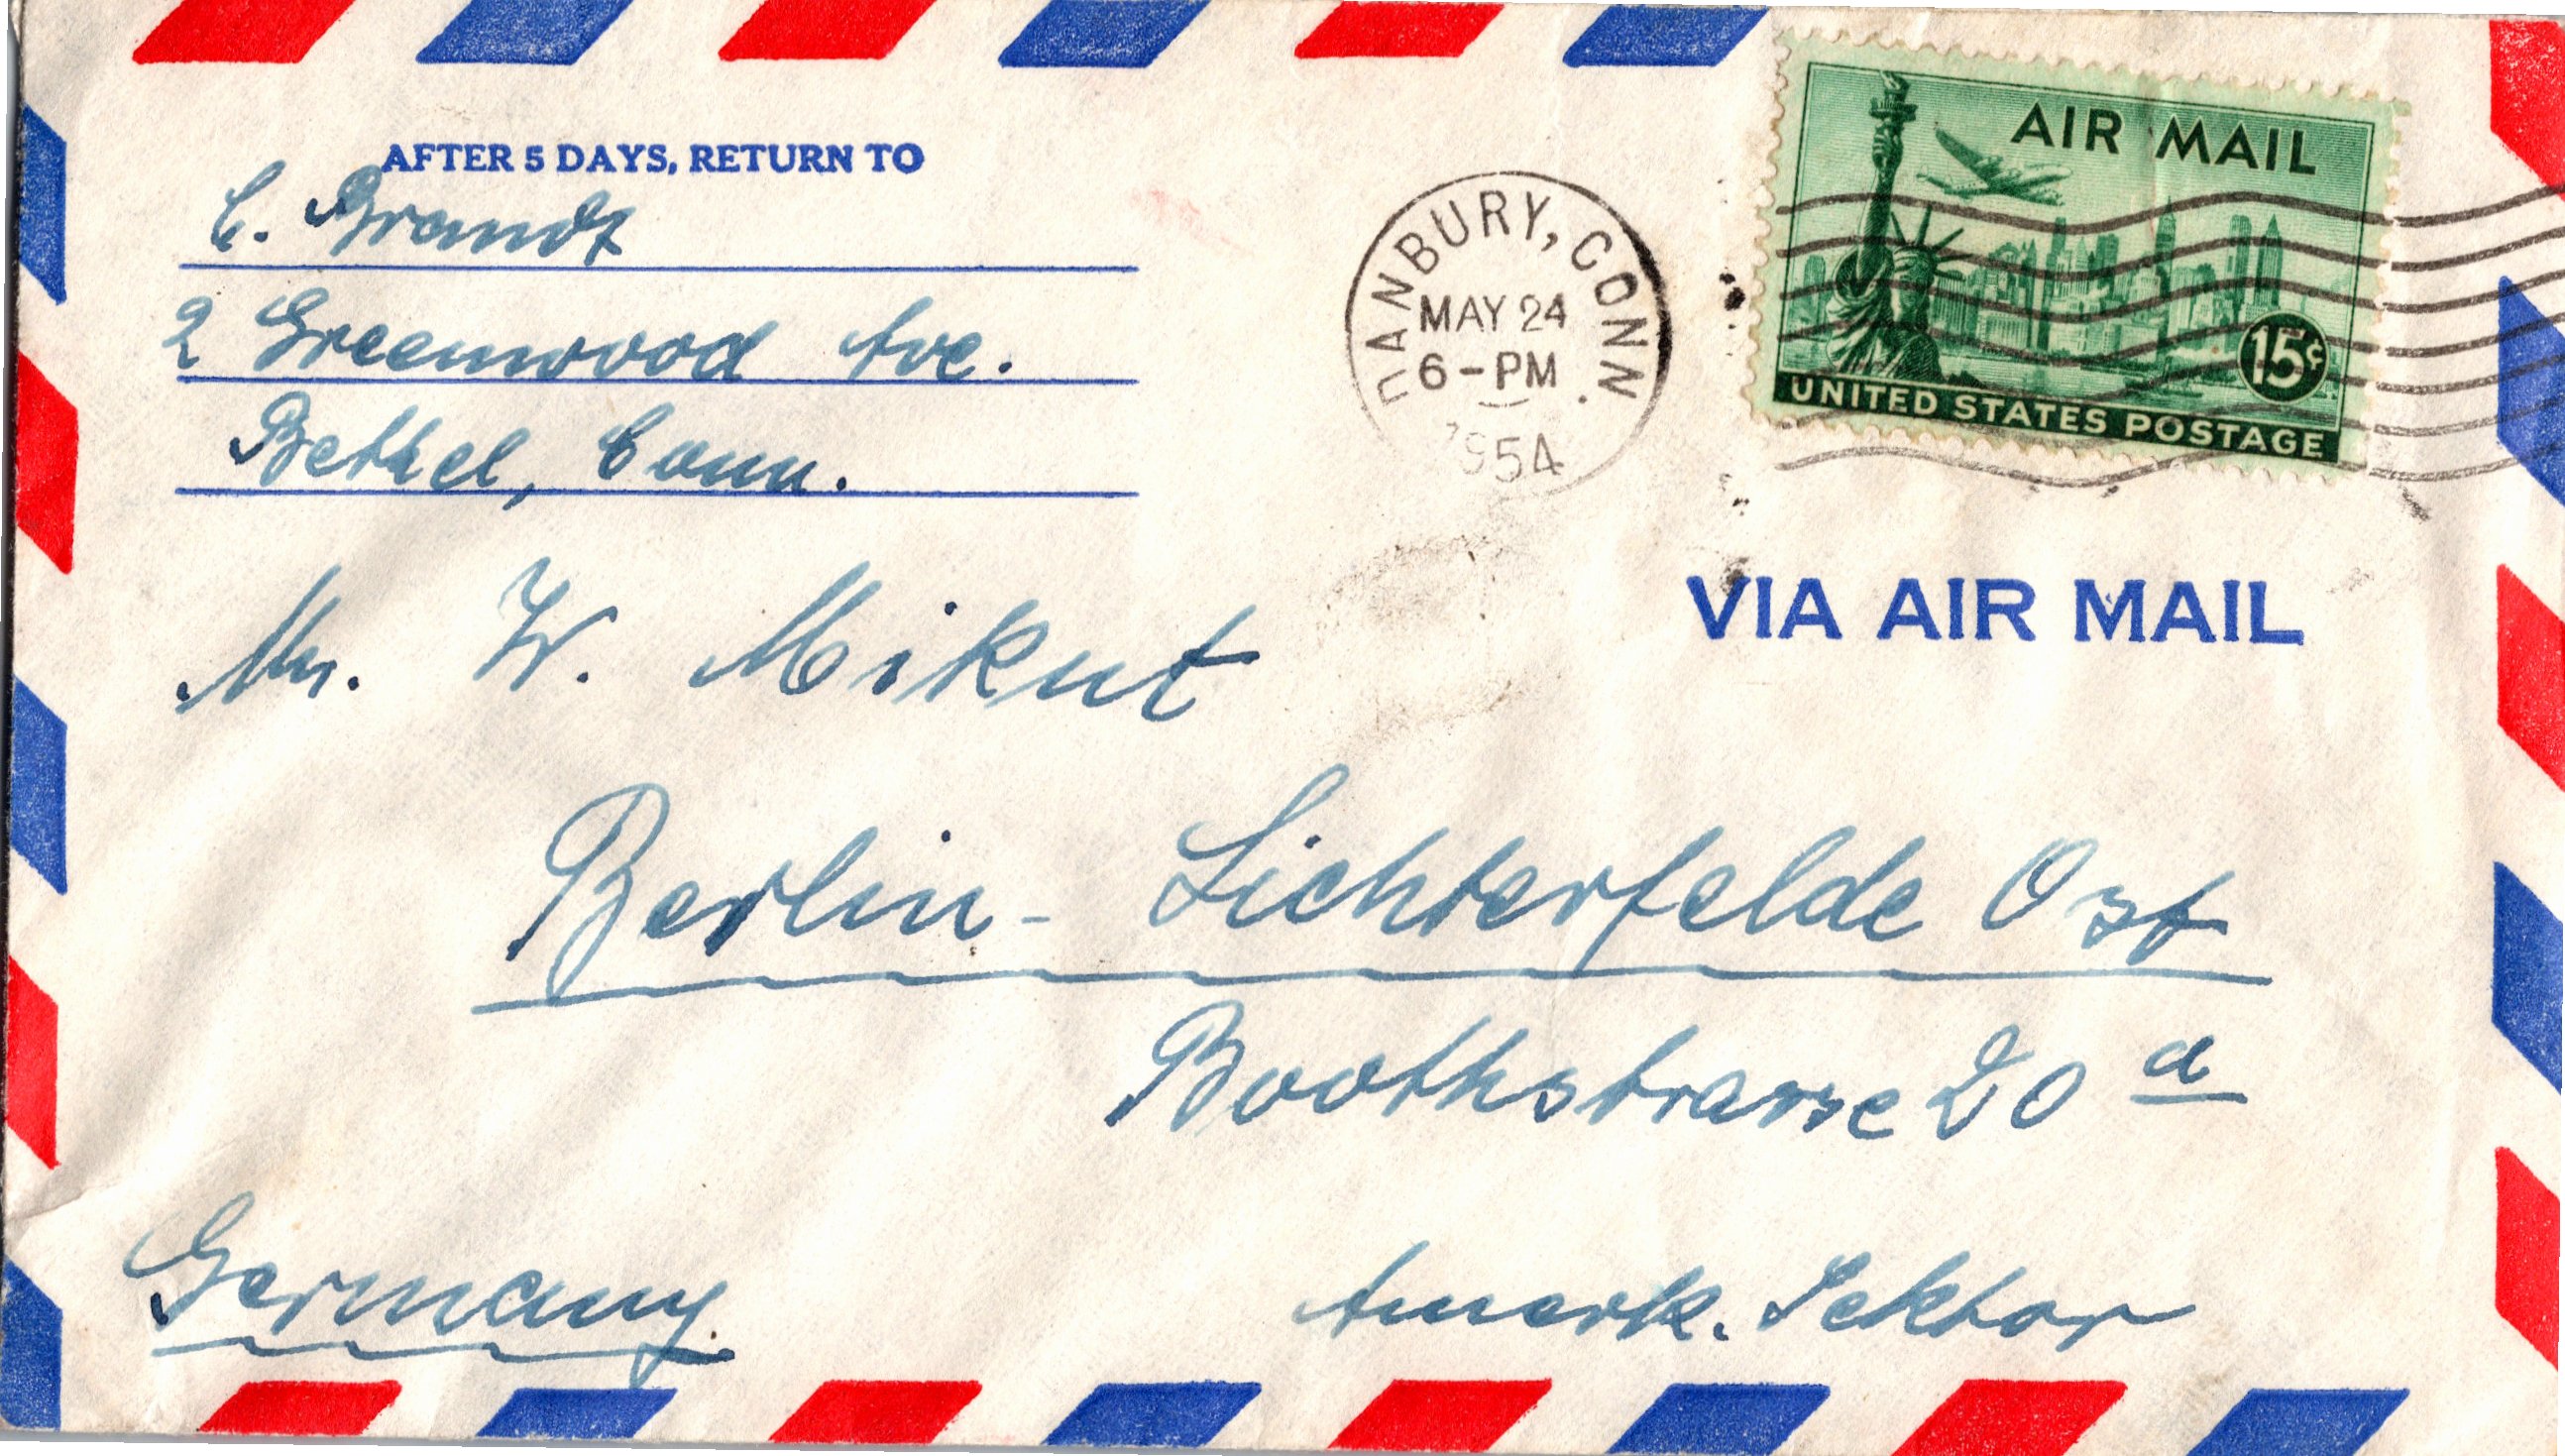 AFTER 5 DAYS, RETURN TO
C. Brandt
2 Greenwood Ave.
Bethel, Conn.
DANBURY, CONN.
MAY 24
6-PM
1954
AIR MAIL
15¢
UNITED STATES POSTAGE
VIA AIR MAIL
Mr. W. Mikut
Berlin- Lichterfelde Ost
Boothstrasse 20 a
Germany.
Amerik. Sektor